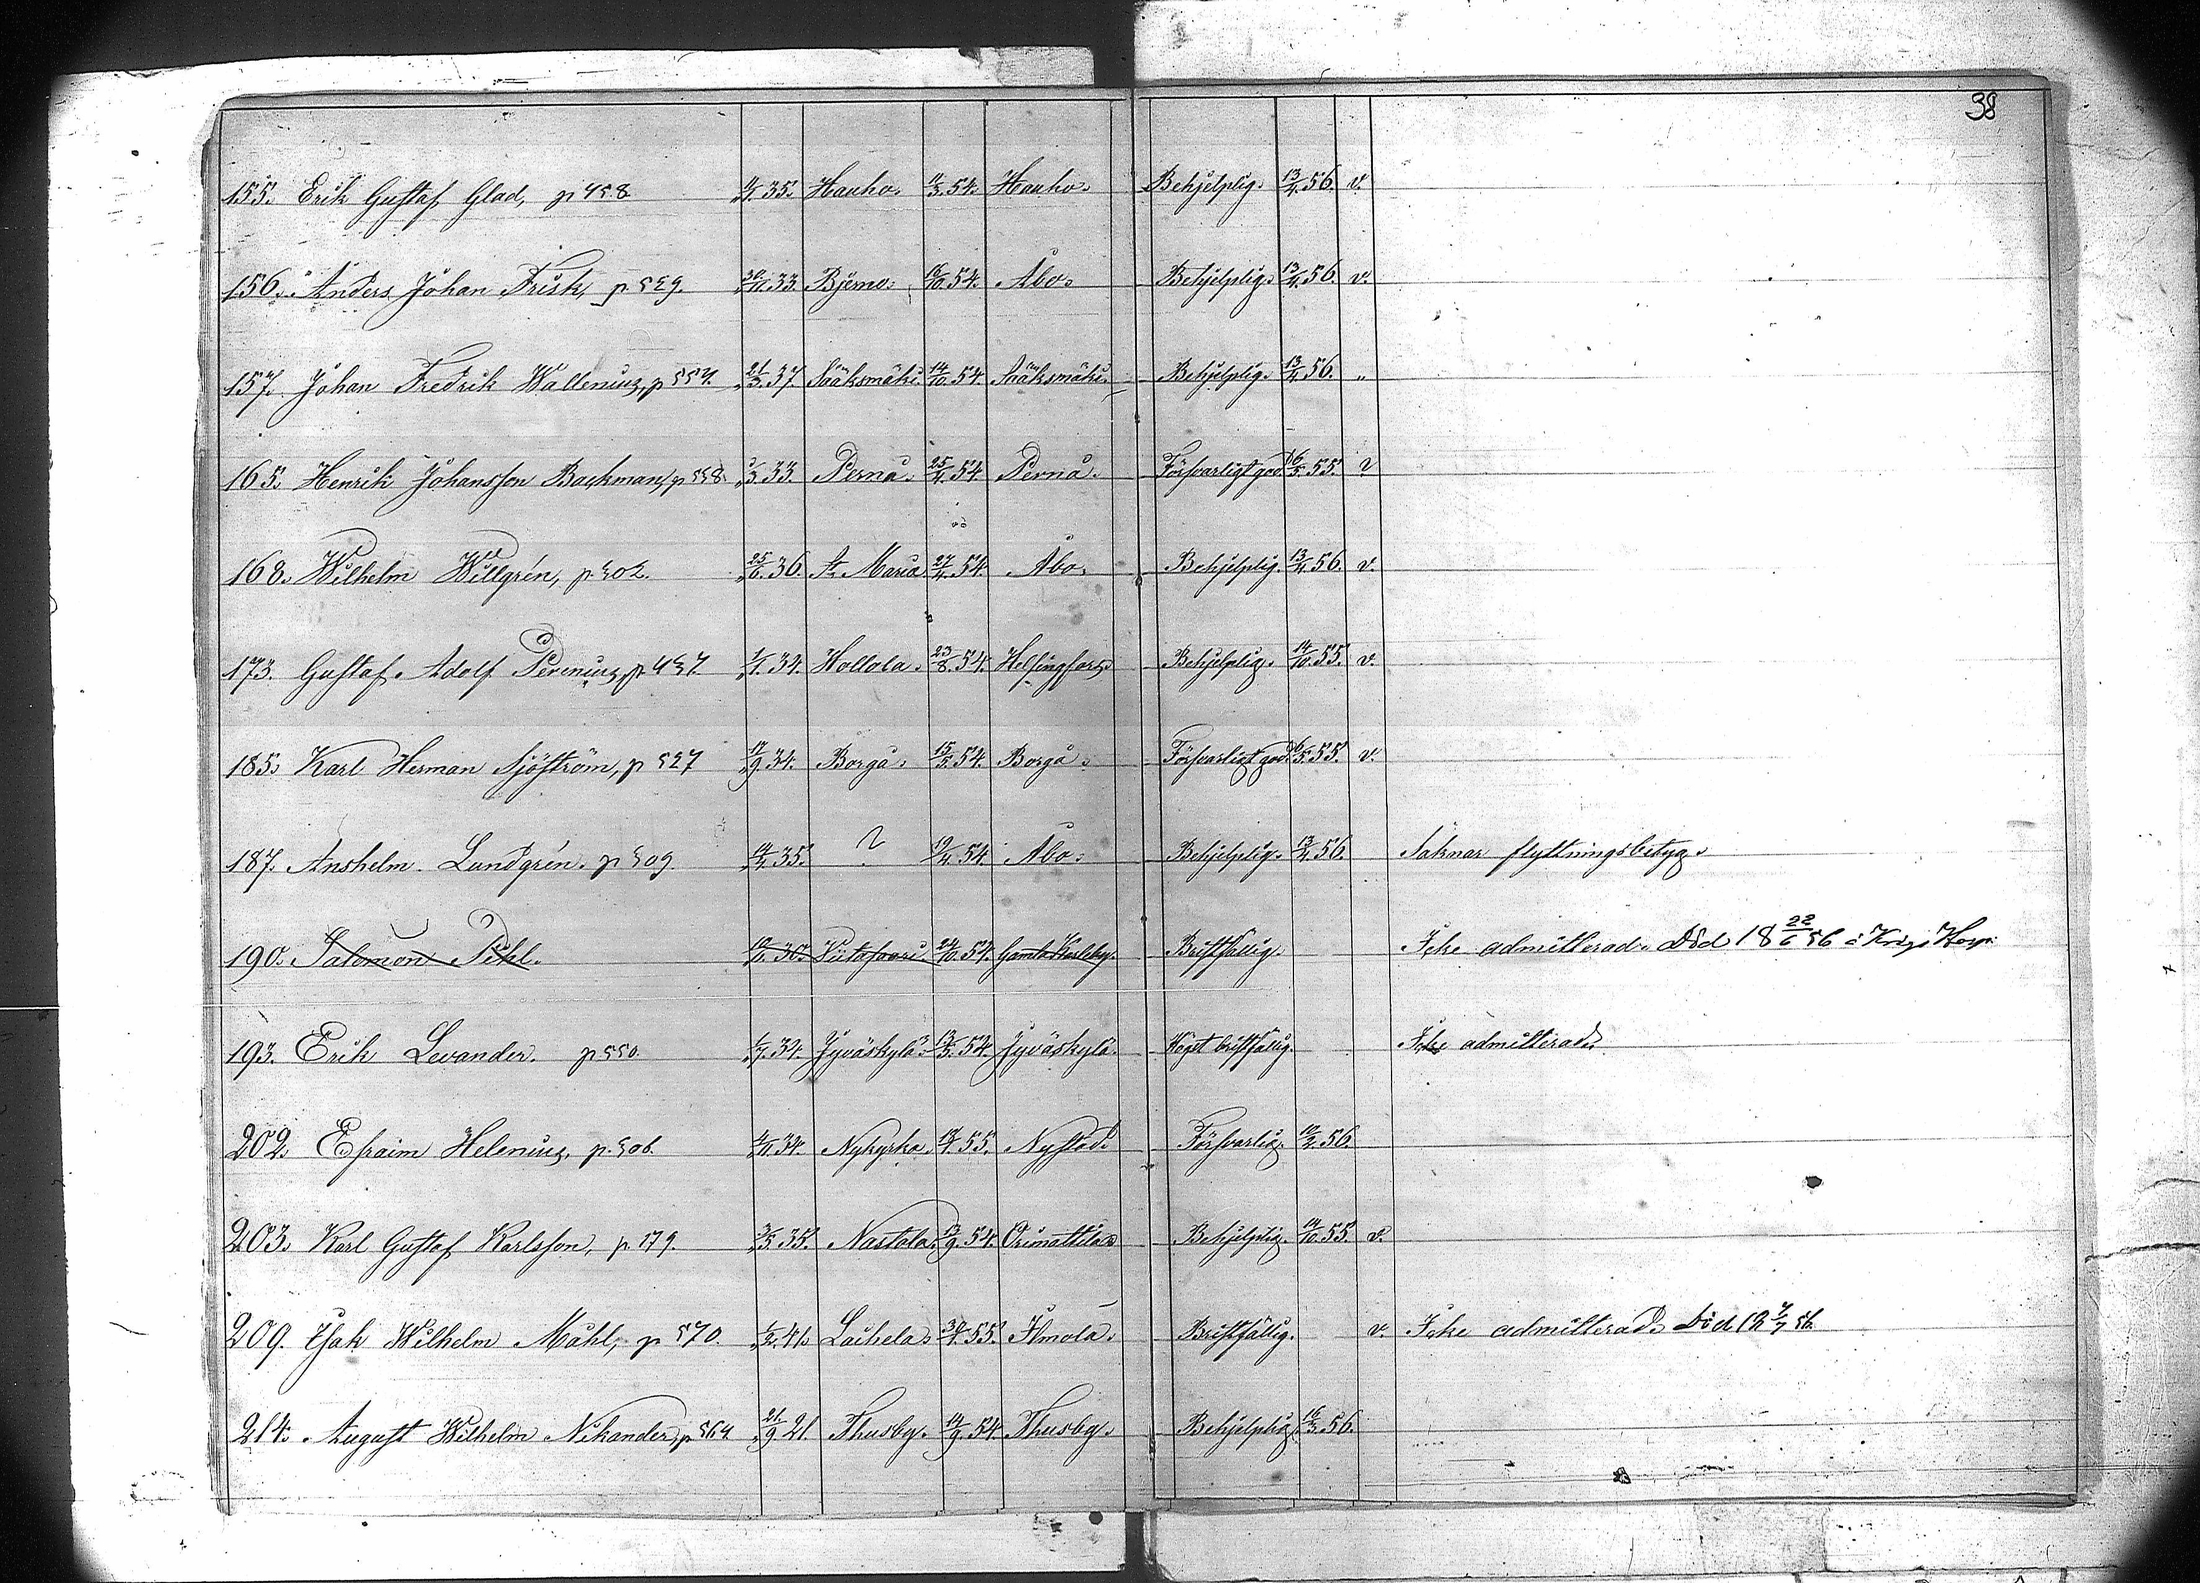 38
155. Erik Gustaf Glad, p 458 35. Hauho. 54. Hauho. Behjelplig. 13/4 56. v.
156. Anders Johan Frisk, p 529. 30/11 33 Bjerno. 16/10 54. Åbo. Behjelplig. 13/4 56. v.
157. Johan Fredrik Wallenius, p 557. 21/3 37 Sääksmäki. 14/10 54. Sääksmäki. Behjelplig. 13/4 56. "
165. Henrik Johansson Backman, p 558. 33. Pernå. 25/4 54. Pernå. Försvarligt god. 6/5 55. v
168. Wilhelm Willgrén, p. 502. 25/6 36. St. Maria 27/4 54. Åbo. Behjelplig. 13/4 56. v.
173. Gustaf Adolf Perenius, p. 457. 1/1 34. Hollola. 23/8 54. Helsingfors. Behjelplig. 14/10 55. v.
185. Karl Herman Sjöström, p 527 17/9 34. Borgå. 15/5 54. Borgå. Försvarligt god. 6/5 55. v.
187. Anshelm Lundgrén. p 509. 35. ? 54. Åbo. Behjelplig. 13/4 56. Saknar flyttningsbetyg.
190. Salomon Pihl. 30. Viitasaari. 24/10 54. Gamla Karleby. Bristfällig. Icke admitterad. Död 18 22/6 56 i Krigs Hosp.
193. Erik Levander. p 550. 1/7 34. Jyväskylä. 54. Jyväskylä. Högst bristfällig. Icke admitterad.
202. Efraim Helenius, p. 506. 34. Nykyrka. 55. Nystad. Försvarlig. 10/2 56.
203. Karl Gustaf Karlsson, p. 179. 3/5 35. Nastola. 13/9 54. Orimattila. Behjelplig. 14/10 55. v.
209. Isak Wilhelm Måhl, p 570. 1/2 41. Laihela. 55. Ilmola. Bristfällig. v. Icke admitterad. Död 18 7/7 56.
214. August Wilhelm Nikander, p 564. 21/9 21 Thusby. 14/9 54. Thusby. Behjelplig. 16/3 56.